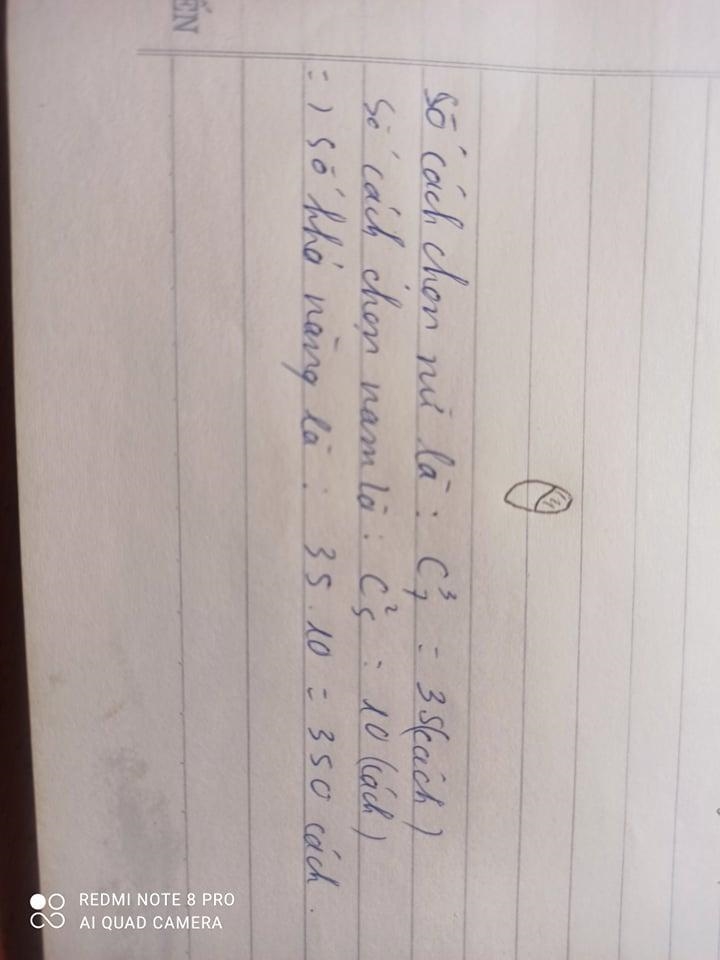 ẾN
Số cách chọn nữ là : C³₇ = 35(cách)
Số cách chọn nam là : C²₅ = 10 (cách)
=) số khả năng là : 35 . 10 = 350 cách .
REDMI NOTE 8 PRO
AI QUAD CAMERA